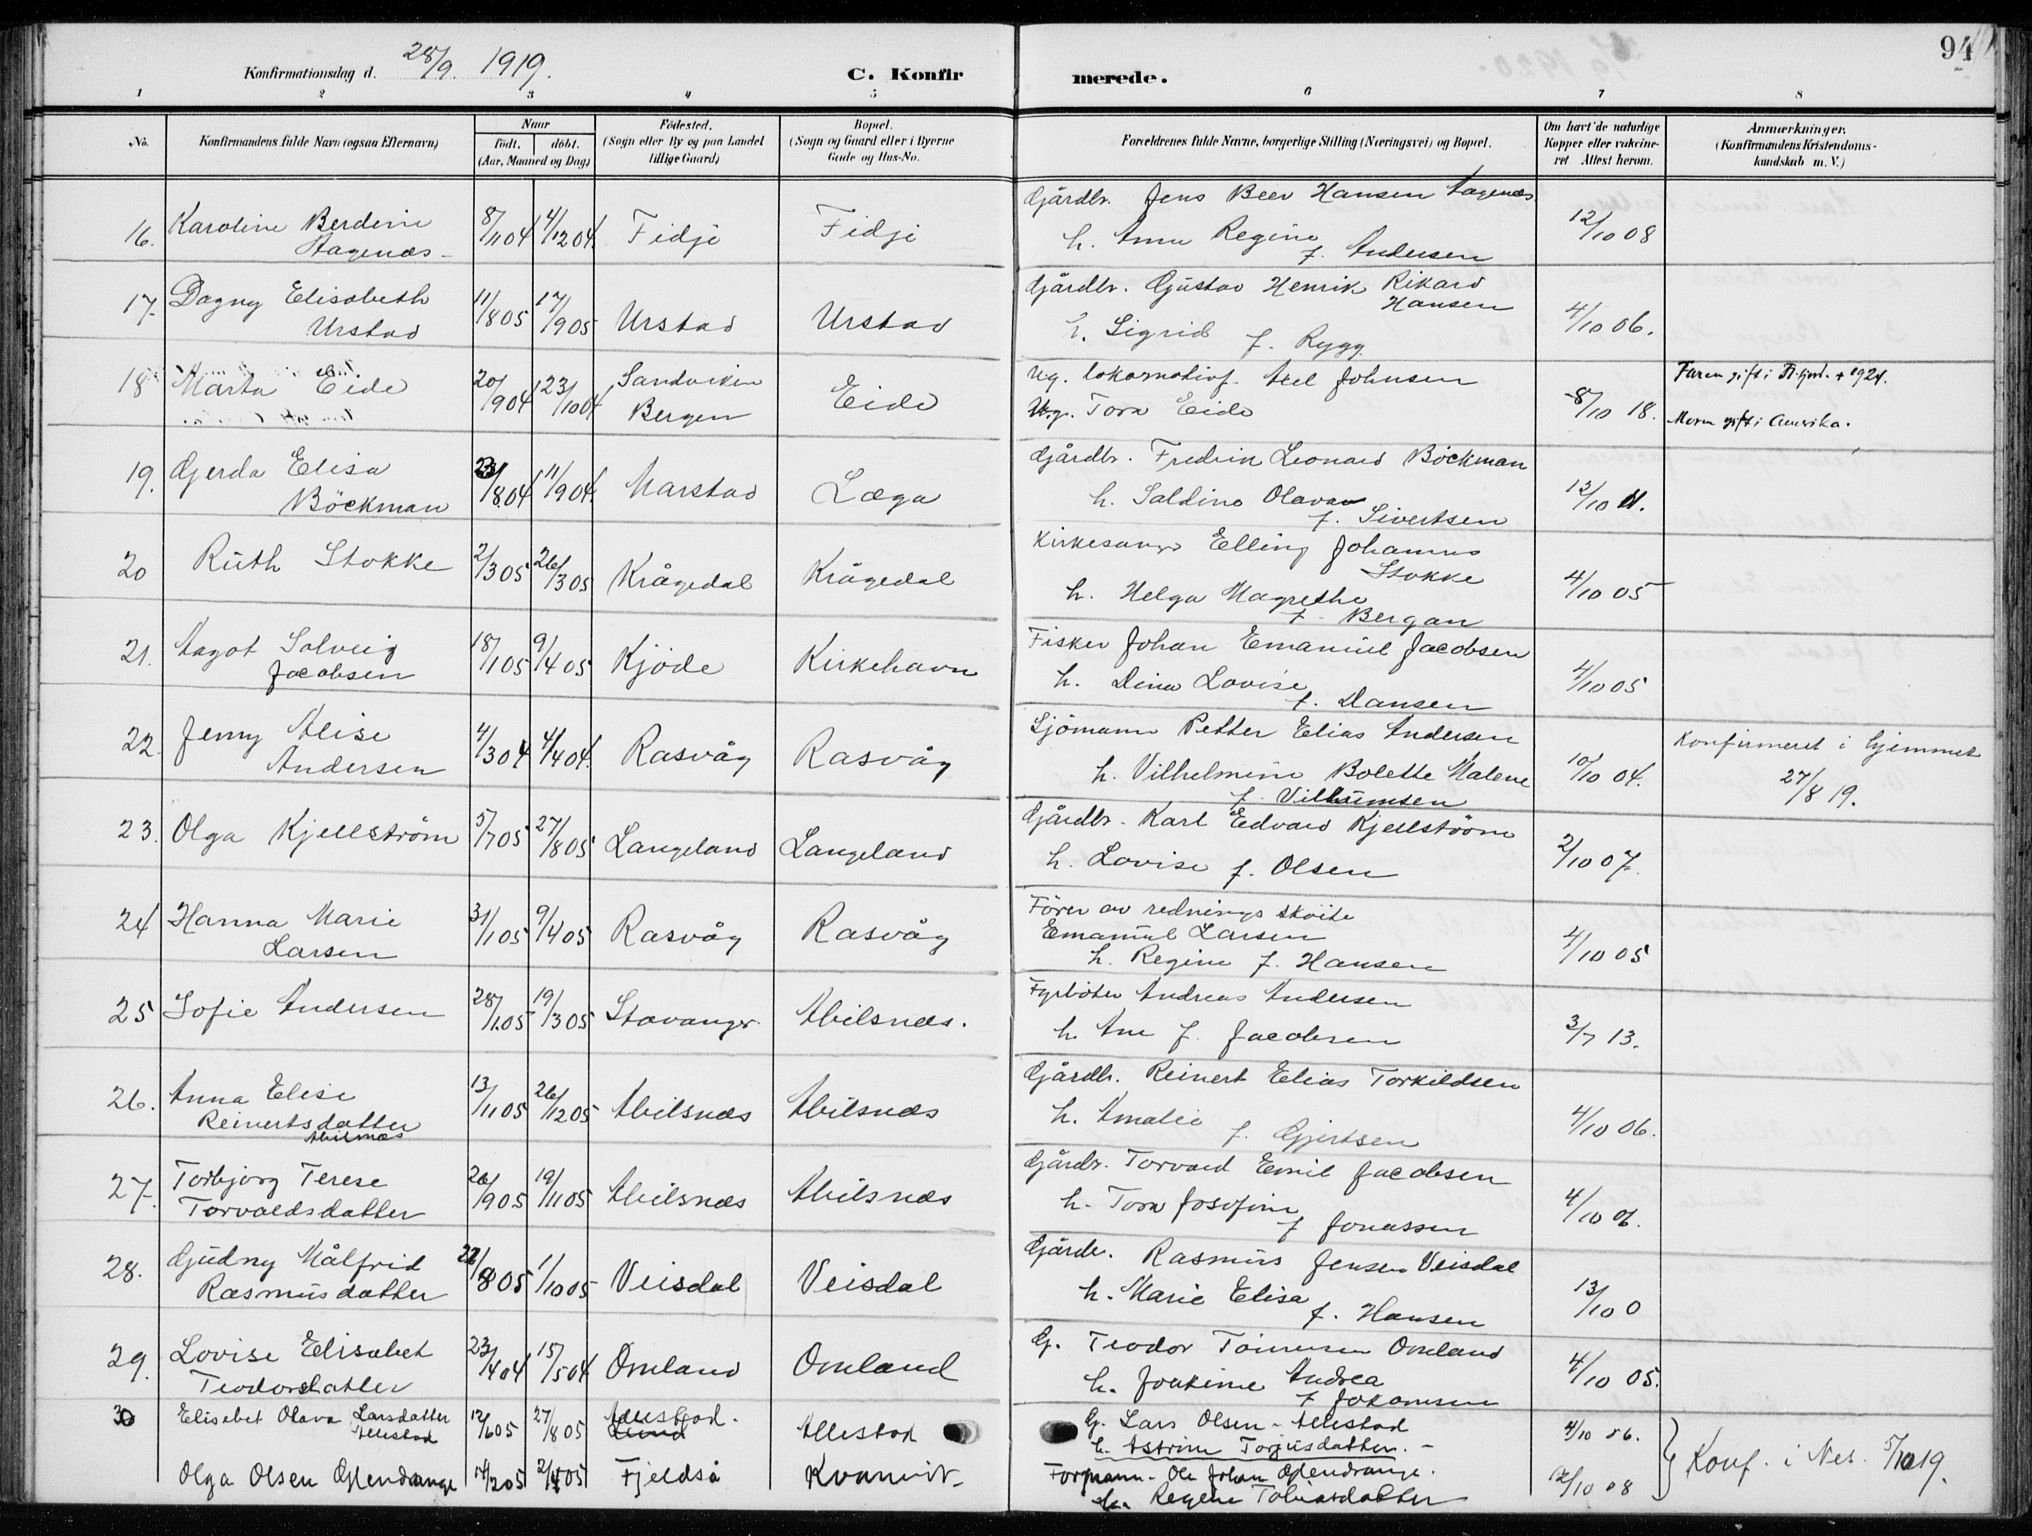 94
Konfirmationsdag d. 28/9. 1919.
C. Konfirmerede.
1 2 3 4 5 6 7 8
No.
Konfirmandens fulde Navn (ogsaa Efternavn)
Naar
født. døbt.
(Aar, Maaned og Dag)
Fødested.
(Sogn eller By og paa Landet
tillige Gaard)
Bopæl.
(Sogn og Gaard eller i Byerne
Gade og Hus-No.
Forældrenes fulde Navne, borgerlige Stilling (Næringsvei) og Bopæl.
Om havt de naturlige
Kopper eller vaccine-
ret Attest herom.
Anmærkninger.
(Konfirmandens Kristendoms-
kundskab m. V.)
16. Karoline Berdine
Hagenæs
8/11 04 4/12 04. Fidje Fidje
Gårdbr. Jens Beer Hansen Hagenæs
h. Anna Regine
f. Andersen
12/10 08
17. Dagny Elisabeth
Urstad
11/8 05 17/9 05 Urstad Urstad
Gårdbr. Gustav Henrik Rikard
Hansen
h. Sigrid f. Rygg
4/10 06.
18 Marta Eide
20/9 04 23/10 04 Sandviken
Bergen
Eide
Ug. lokomotivf. Axel Johnsen
Ug. Tora Eide
8/10 18.
Faren gift i + 1924.
Moren gift i Amerika.
19. Gerda Elisa
Böckman
23/8 04 11/9 04. Marstad Læga
Gårdbr. Fredrik Leonard Böckman
h. Saldine Olava
f. Sivertsen
13/10 11.
20 Ruth Stokke
2/3 05 26/3 05 Krågedal Krågedal
Kirkesanger Elling Johannes
Stokke
h. Helga Magrethe
f. Bergan
4/10 05
21. Aagot Solveig
Jacobsen
18/1 05 9/4 05 Kjöde Kirkehavn
Fisker Johan Emanuel Jacobsen
h. Dina Lovise
f. Dansen
4/10 05
22. Jenny Alise
Andersen
4/3 04 4/4 04. Rasvåg Rasvåg
Sjömann Petter Elias Andersen
h. Vilhelmine Bolette Malene
f. Villumsen
10/10 04.
Konfirmeret i hjemmet
27/8 19.
23. Olga Kjellström
5/7 05 27/8 05 Langeland Langeland
Gårdbr. Karl Edvard Kjellström
h. Lovise f. Olsen
2/10 07.
24 Hanna Marie
Larsen
31/1 05 9/4 05 Rasvåg Rasvåg
Förer av rednings sköite
Emanuel Larsen
h. Regine f. Hansen
4/10 05
25 Sofie Andersen
28/1 05 19/3 05 Stavanger Abilsnæs.
Fyrböter Andreas Andersen
h. Ane f. Jacobsen
3/7 13.
26. Anna Elise
Reinertsdatter
Abilsnæs
13/11 05 26/12 05 Abilsnæs Abilsnæs
Gårdb. Reinert Elias Torkildsen
h. Amalie f. Gjertsen
4/10 06.
27. Torbjorg Terese
Torvaldsdatter
26/9 05 19/11 05 Abilsnæs Abilsnæs
Gårdbr. Torvald Emil Jacobsen
h. Tora Josofine
f. Jonassen
4/10 06.
28. Gudny Målfrid
Rasmusdatter
22/8 05 1/10 05 Veisdal Veisdal
Gårdb. Rasmus Jensen Veisdal
h. Marie Elisa
f. Hansen
13/10 0
29. Lovise Elisabet
Teodorsdatter
23/4 04 15/5 04 Omland Omland
G. Teodor Tönnesen Omland
h. Joakime Andrea
f. Johansen
4/10 05.
30 Elisabet Olava Larsdatter
Allestad
12/6 05 27/8 05 Allestad.
Lund
Allestad
G. Lars Olsen - Allestad
h. Astrine Torjusdatter. -
4/10 06.
Olga Olsen Öllendrange
14/2 05 2/4 05 Fjeldså Kvanvik
Formann. Ole Johan Öllendrange.
h. Regine Tobiasdatter
2/10 08
Konf. i Nes. 5/10 19.